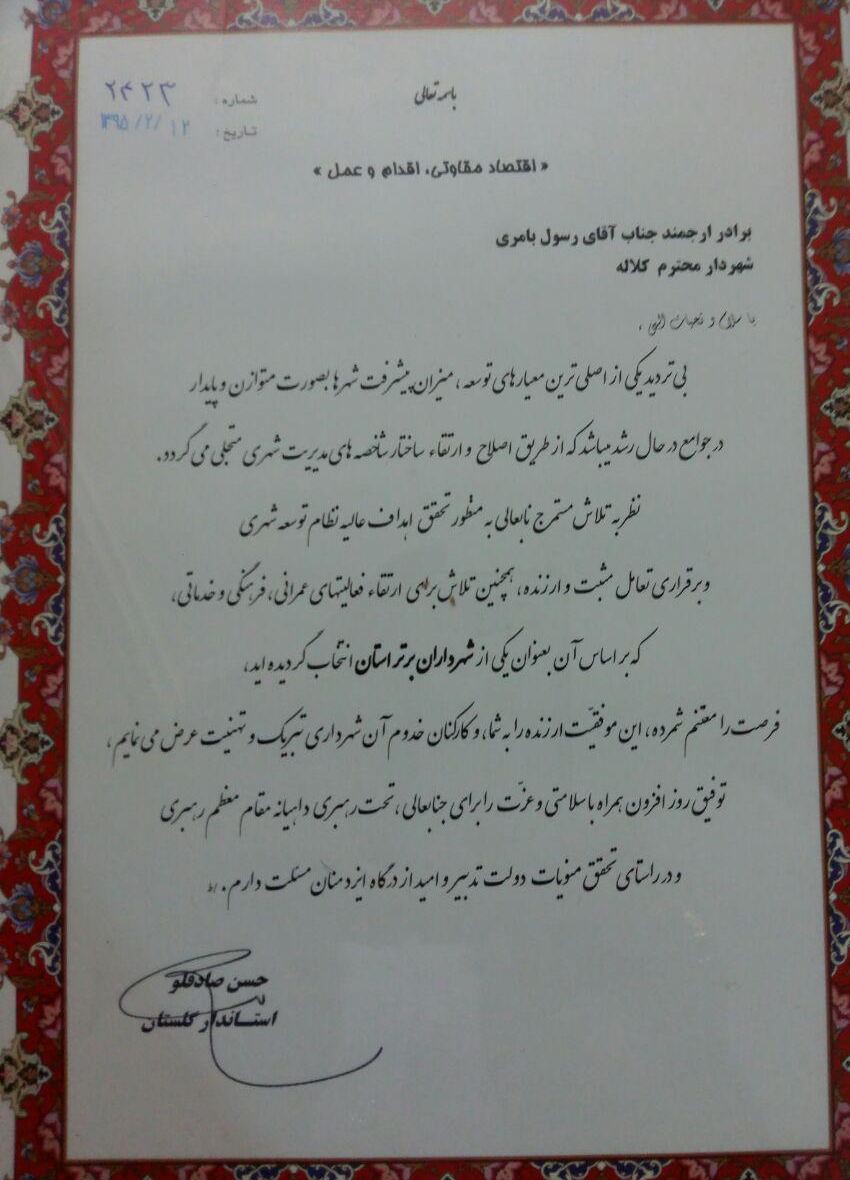 باسمه تعالی
شماره: ۲۴۲۳
تاریخ: ۱۳۹۵/۲/۱۲
« اقتصاد مقاوتی، اقدام و عمل »
برادر ارجمند جناب آقای رسول بامری
شهردار محترم کلاله
با سلام و تحیات الهی ،
بی تردید یکی از اصلی ترین معیارهای توسعه ، میزان پیشرفت شهرها بصورت متوازن و پایدار
در جوامع در حال رشد میباشد که از طریق اصلاح و ارتقاء ساختار شاخصه های مدیریت شهری متجلی می گردد.
نظر به تلاش مستمر جنابعالی به منظور تحقق اهداف عالیه نظام توسعه شهری
و برقراری تعامل مثبت و ارزنده، همچنین تلاش برای ارتقاء فعالیتهای عمرانی، فرهنگی و خدماتی،
که بر اساس آن بعنوان یکی از شهرداران برتر استان انتخاب گردیده اید،
فرصت را مغتنم شمرده، این موفقیّت ارزنده را به شما، و کارکنان خدوم آن شهرداری تبریک و تهنیت عرض می نمایم ،
توفیق روز افزون همراه با سلامتی و عزّت را برای جنابعالی ، تحت رهبری داهیانه مقام معظم رهبری
و در راستای تحقق منویات دولت تدبیر و امید از درگاه ایزد منان مسئلت دارم .
حسن صادقلو
استاندار گلستان